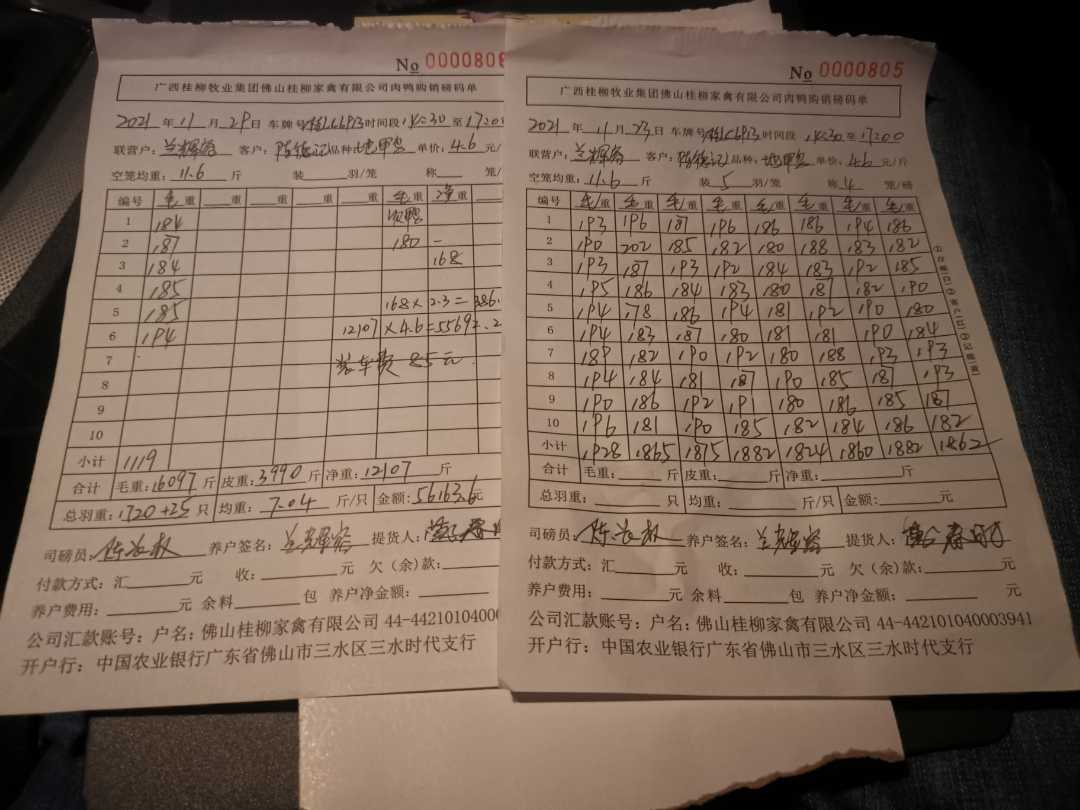 No 0000806
广西桂柳牧业集团佛山桂柳家禽有限公司肉鸭购销磅码单
2021 年 11 月 29 日 车牌号 时间段 14:30 至 17:00
联营户: 兰辉容 客户: 陈德记 品种: 单价: 4.6 元/
空笼均重: 11.6 斤 装 羽/笼 称 笼/
编号 毛重 重 重 重 重 毛重 净重
1 184 次鸭
2 187 180 -
3 184 168
4 185
5 185 168×2.3=386.
6 194 12107×4.6=55692.2
7 装车费 85元
8
9
10
小计 1119
合计 毛重: 16097 斤 皮重: 3990 斤 净重: 12107 斤
总羽重: 1720+25 只 均重: 7.04 斤/只 金额: 56163.6元
司磅员: 养户签名: 兰辉容 提货人:
付款方式: 汇 元 收: 元 欠(余)款:
养户费用: 元 余料 包 养户净金额:
公司汇款账号: 户名: 佛山桂柳家禽有限公司 44-4421010400
开户行: 中国农业银行广东省佛山市三水区三水时代支行
No 0000805
广西桂柳牧业集团佛山桂柳家禽有限公司肉鸭购销磅码单
2021 年 11 月 23 日 车牌号 时间段 14:30 至 17:00
联营户: 兰辉容 客户: 陈德记 品种: 单价: 4.6 元/斤
空笼均重: 11.6 斤 装 5 羽/笼 称 4 笼/磅
编号 毛重 毛重 毛重 毛重 毛重 毛重 毛重 毛重
1 193 196 187 196 186 186 194 186
2 190 202 185 182 180 188 183 182
3 193 187 193 192 184 183 192 185
4 195 186 184 183 180 187 182 190
5 194 178 186 194 181 192 190 180
6 194 183 187 180 181 181 190 184
7 189 182 190 192 180 188 193 193
8 194 184 181 187 190 185 187 193
9 190 186 192 191 180 186 185 187
10 196 181 190 185 182 184 186 182
小计 1928 1865 1875 1882 1824 1860 1882 1862
合计 毛重: 斤 皮重: 斤 净重: 斤
总羽重: 只 均重: 斤/只 金额: 元
司磅员: 养户签名: 兰辉容 提货人:
付款方式: 汇 元 收: 元 欠(余)款: 元
养户费用: 元 余料 包 养户净金额: 元
公司汇款账号: 户名: 佛山桂柳家禽有限公司 44-442101040003941
开户行: 中国农业银行广东省佛山市三水区三水时代支行